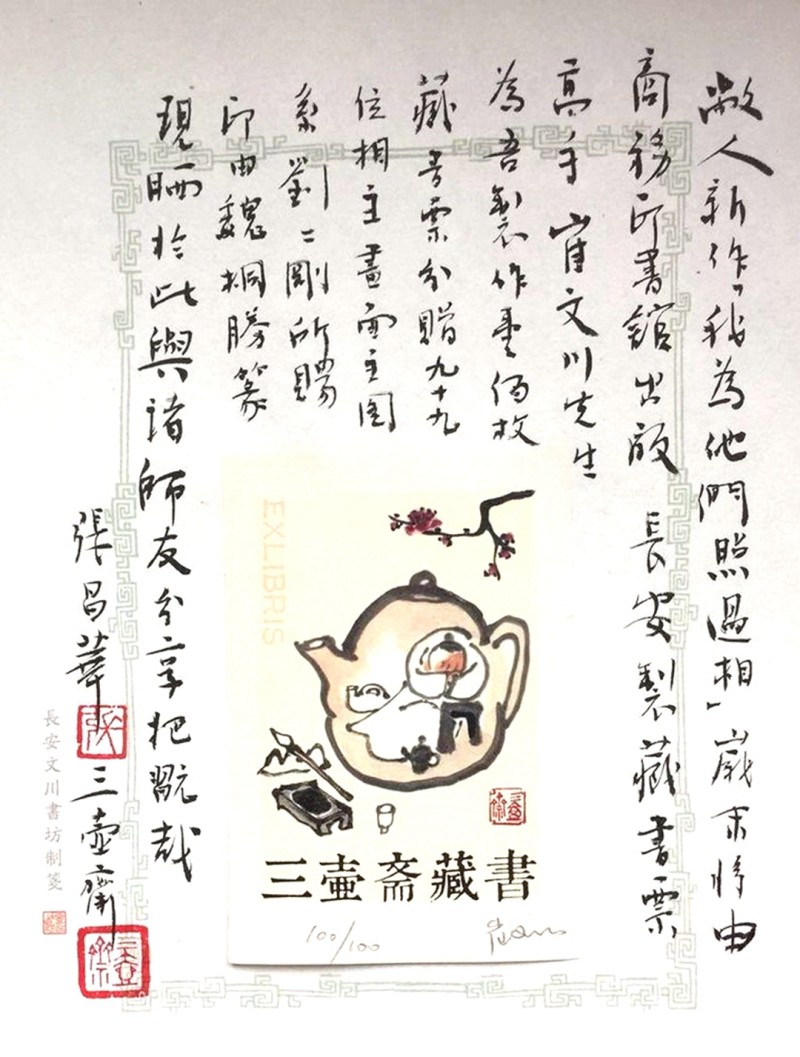 敝人新作「我為他們照過相」歲末將由
商務印書館出版 長安製藏書票
高手崔文川先生
為吾製作壹佰枚
藏書票分贈九十九
位相主畫面主图
系劉二剛所賜
印由魏桐勝篆
現晒於此與諸師友分享把翫哉
張昌華
三壺齋
長安文川書坊制箋
EXLIBRIS
三壷斋藏書
100/100